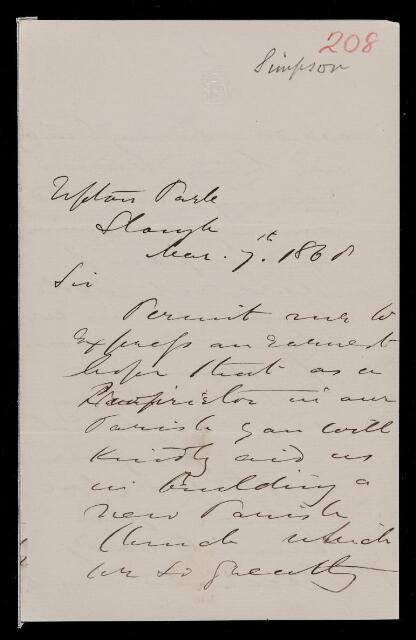 208
Simpson
Upton Park
Slough
Mar. 7th. 1868
Sir
Permit me to
Express an Earnest
hope that as a
Proprietor in our
Parish you will
kindly aid us
in building a
new Parish
Church which
we so greatly